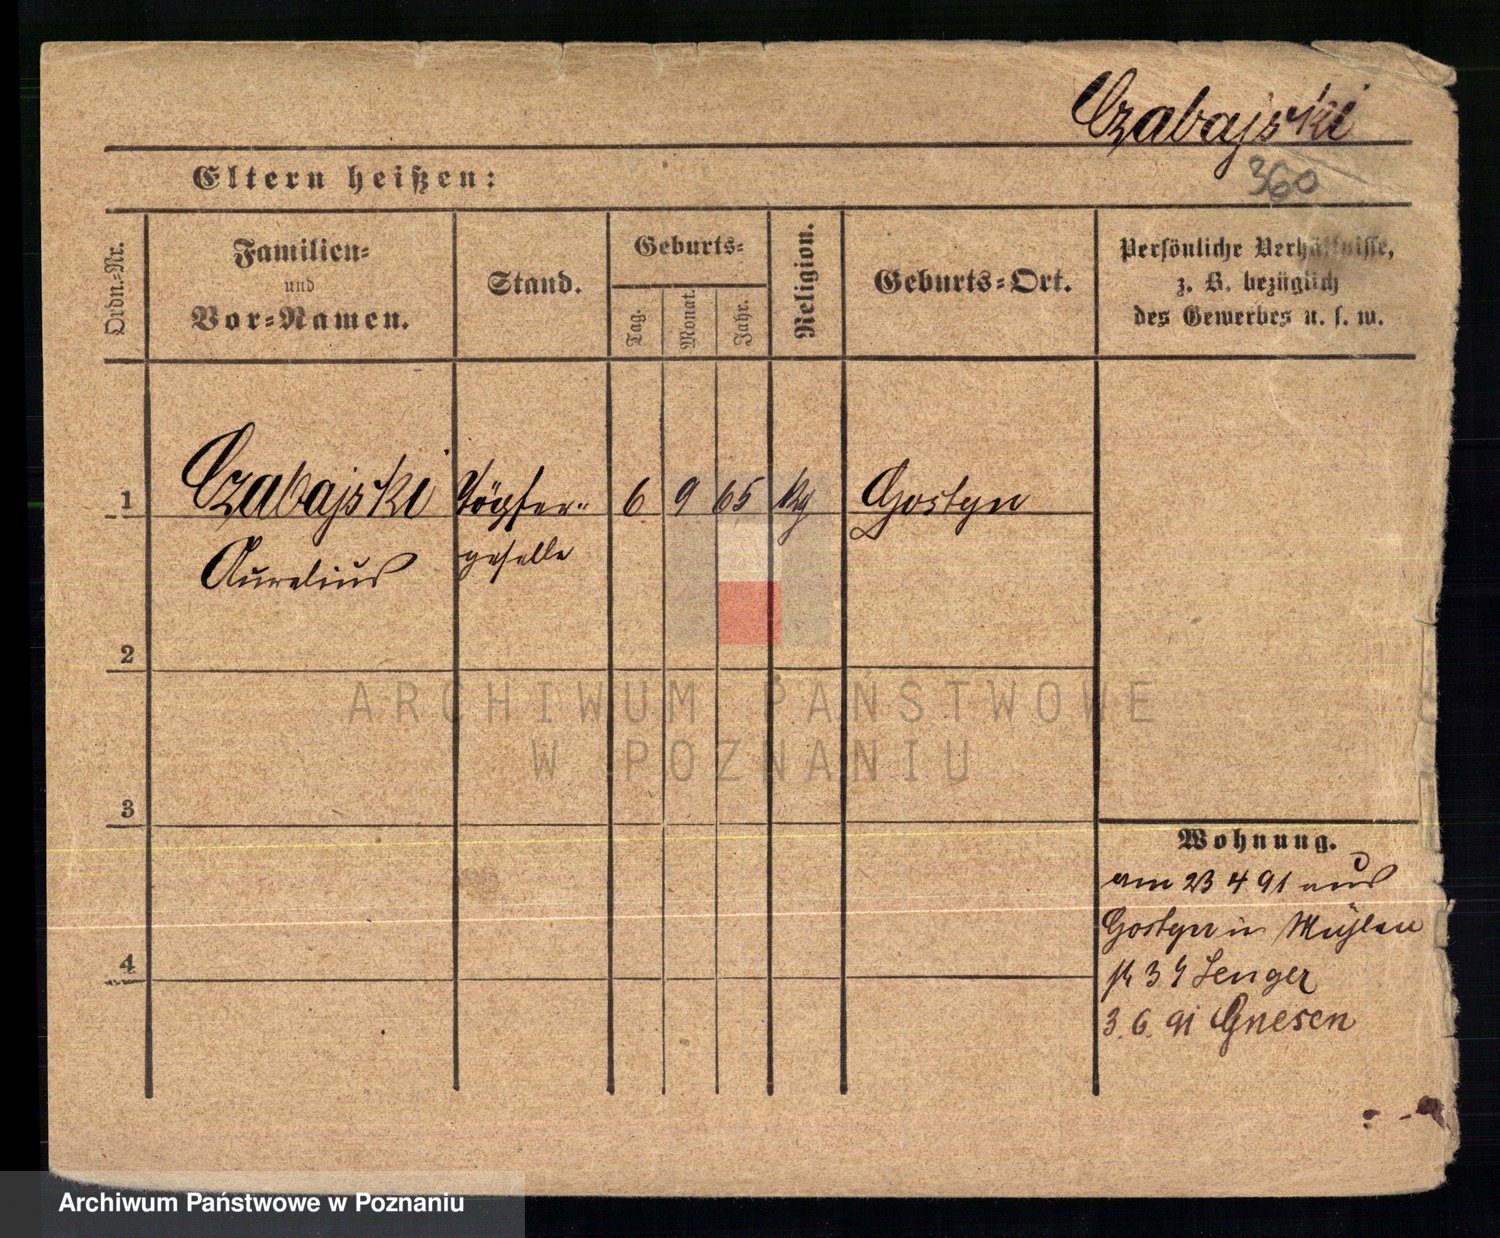 Czabajski
360
Eltern heißen:
Ordn.=Nr.
Familien=
und
Vor=Namen.
Stand.
Geburts=
Tag.
Monat.
Jahr.
Religion.
Geburts=Ort.
Persönliche Verhältnisse,
z. B. bezüglich
des Gewerbes u. s. w.
1 Czabajski Töpfer= 6 9 65 Gostyn
Aurelius geselle
2
3
4
Wohnung.
am 23 4 91 aus
Gostyn in Mühlen
3.6.91 Gnesen
ARCHIWUM PAŃSTWOWE
W POZNANIU
Archiwum Państwowe w Poznaniu